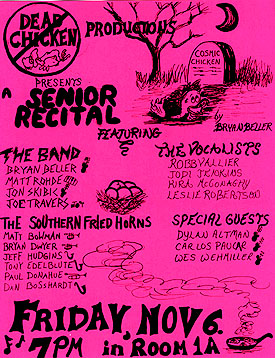 DEAD
CHICKEN
PRODUCTIONS
PRESENTS
A SENIOR
RECITAL
COSMIC
CHICKEN
FEATURING
by BRYAN BELLER
THE BAND
BRYAN BELLER
MATT ROHDE
JON SKIBIC
JOE TRAVERS
THE VOCALISTS
ROBB VALLIER
JODI JENKINS
KIRA McGONAGHY
LESLIE ROBERTSON
THE SOUTHERN FRIED HORNS
MATT BOWMAN
BRYAN DWYER
JEFF HUDGINS
TONY EDELBLUTE
PAUL DONAHUE
DAN BOSSHARDT
SPECIAL GUESTS
DYLAN ALTMAN
CARLOS PAUCAR
WES WEHMILLER
FRIDAY, NOV 6.
7PM in ROOM 1A